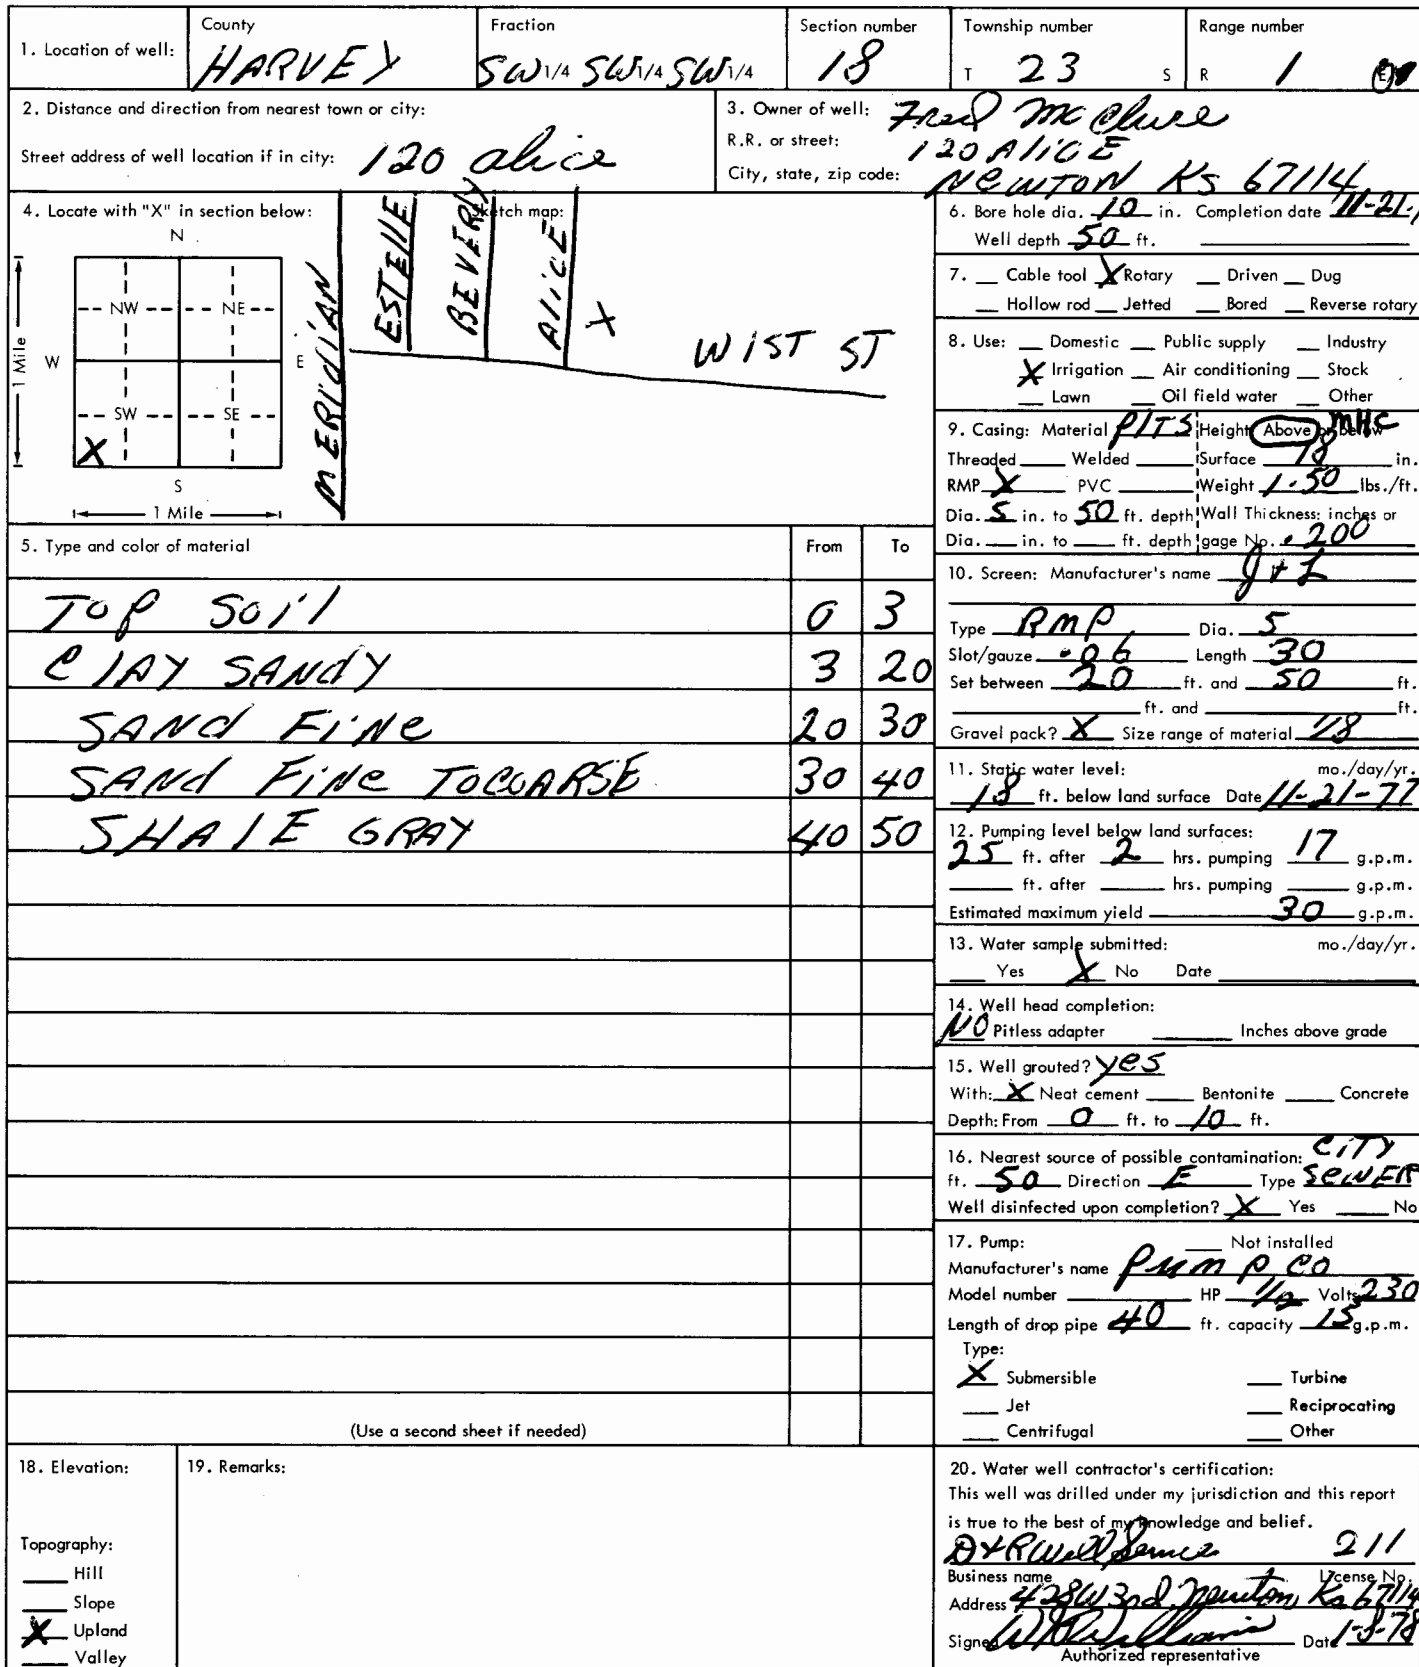 1. Location of well:
County
HARVEY
Fraction
SW 1/4 SW 1/4 SW 1/4
Section number
18
Township number
T 23 S
Range number
R 1 E
2. Distance and direction from nearest town or city:
Street address of well location if in city: 120 alice
3. Owner of well: Fred McClure
R.R. or street: 120 AliCE
City, state, zip code: NewTON Ks 67114
4. Locate with "X" in section below:
Sketch map:
N
NW NE
W E
SW SE
X
S
1 Mile
1 Mile
MERIdiAN
ESTELLE
BEVERLY
AliCE
X
WIST ST
5. Type and color of material From To
TOP SOil 0 3
ClAY SANdY 3 20
SANd FiNe 20 30
SANd FiNe TOCOARSE 30 40
SHAlE GRAY 40 50
(Use a second sheet if needed)
6. Bore hole dia. 10 in. Completion date 11-21-
Well depth 50 ft.
7. Cable tool X Rotary Driven Dug
Hollow rod Jetted Bored Reverse rotary
8. Use: Domestic Public supply Industry
X Irrigation Air conditioning Stock
Lawn Oil field water Other
9. Casing: Material PITS Height: Above or below MHC
Threaded Welded Surface 18 in.
RMP X PVC Weight 1.50 lbs./ft.
Dia. 5 in. to 50 ft. depth Wall Thickness: inches or
Dia. in. to ft. depth gage No. .200
10. Screen: Manufacturer's name J+L
Type RMP Dia. 5
Slot/gauze .06 Length 30
Set between 20 ft. and 50 ft.
ft. and ft.
Gravel pack? X Size range of material 1/8
11. Static water level: mo./day/yr.
18 ft. below land surface Date 11-21-77
12. Pumping level below land surfaces:
25 ft. after 2 hrs. pumping 17 g.p.m.
ft. after hrs. pumping g.p.m.
Estimated maximum yield 30 g.p.m.
13. Water sample submitted: mo./day/yr.
Yes X No Date
14. Well head completion:
NO Pitless adapter Inches above grade
15. Well grouted? yes
With: X Neat cement Bentonite Concrete
Depth: From 0 ft. to 10 ft.
16. Nearest source of possible contamination: CiTY
ft. 50 Direction E Type SeWER
Well disinfected upon completion? X Yes No
17. Pump: Not installed
Manufacturer's name Pump CO
Model number HP 1/2 Volts 230
Length of drop pipe 40 ft. capacity 15 g.p.m.
Type:
X Submersible Turbine
Jet Reciprocating
Centrifugal Other
18. Elevation:
Topography:
Hill
Slope
X Upland
Valley
19. Remarks:
20. Water well contractor's certification:
This well was drilled under my jurisdiction and this report
is true to the best of my knowledge and belief.
D+R Well Service 211
Business name License No.
Address 428 W 3rd. Newton Ks 67114
Signed W R Williams Date 1-3-78
Authorized representative